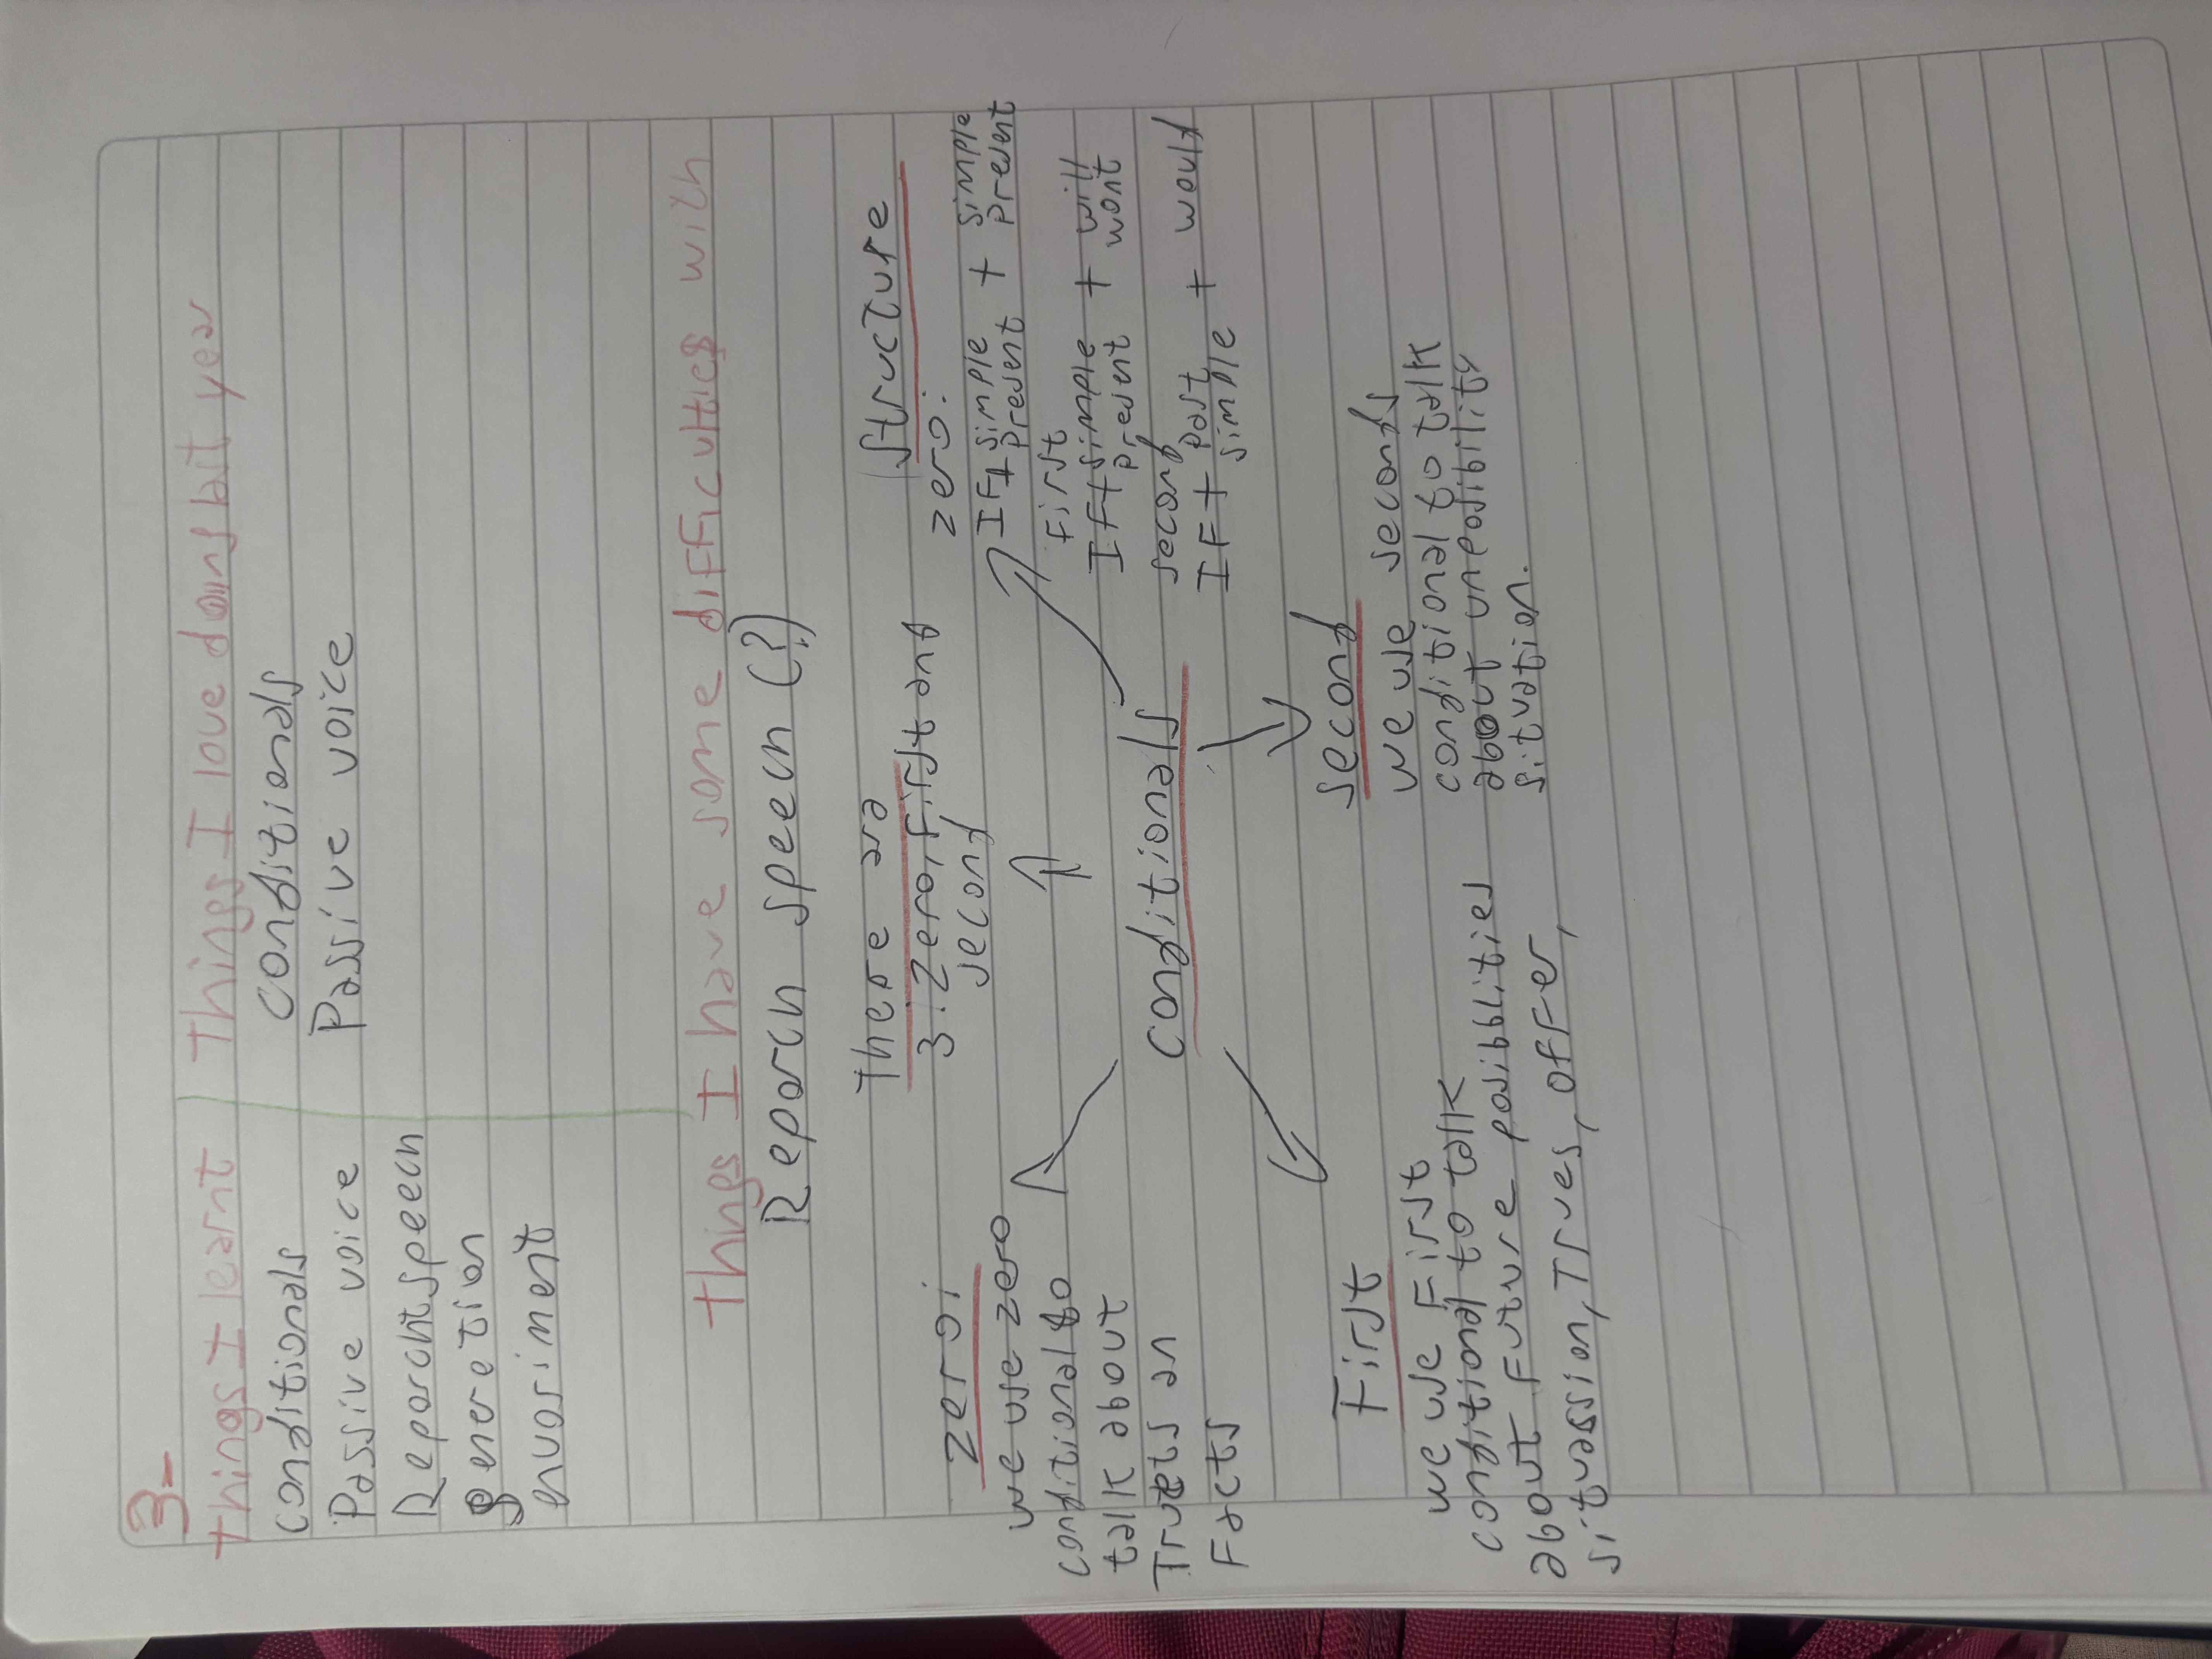 3-
Things I learnt
conditionals
Passive voice
Reporcht speech
generetion
envoriment
Things I love doing last year
conditionals
Passive voice
Things I have some difficulties with
Reporch speech (?)
There are
3: Zero, First and
second
Structure
zero:
IF + simple present + simple present
First
IF + simple present + will wont
second
IF + past simple + would
zero:
we use zero
conditional to
talk about
Truets an
Facts
conditionals
First
we use First
conditional to talk
about Future posibblities
situassion, Trues, offer,
second
we use second
conditional to talk
about unposibility
situation.